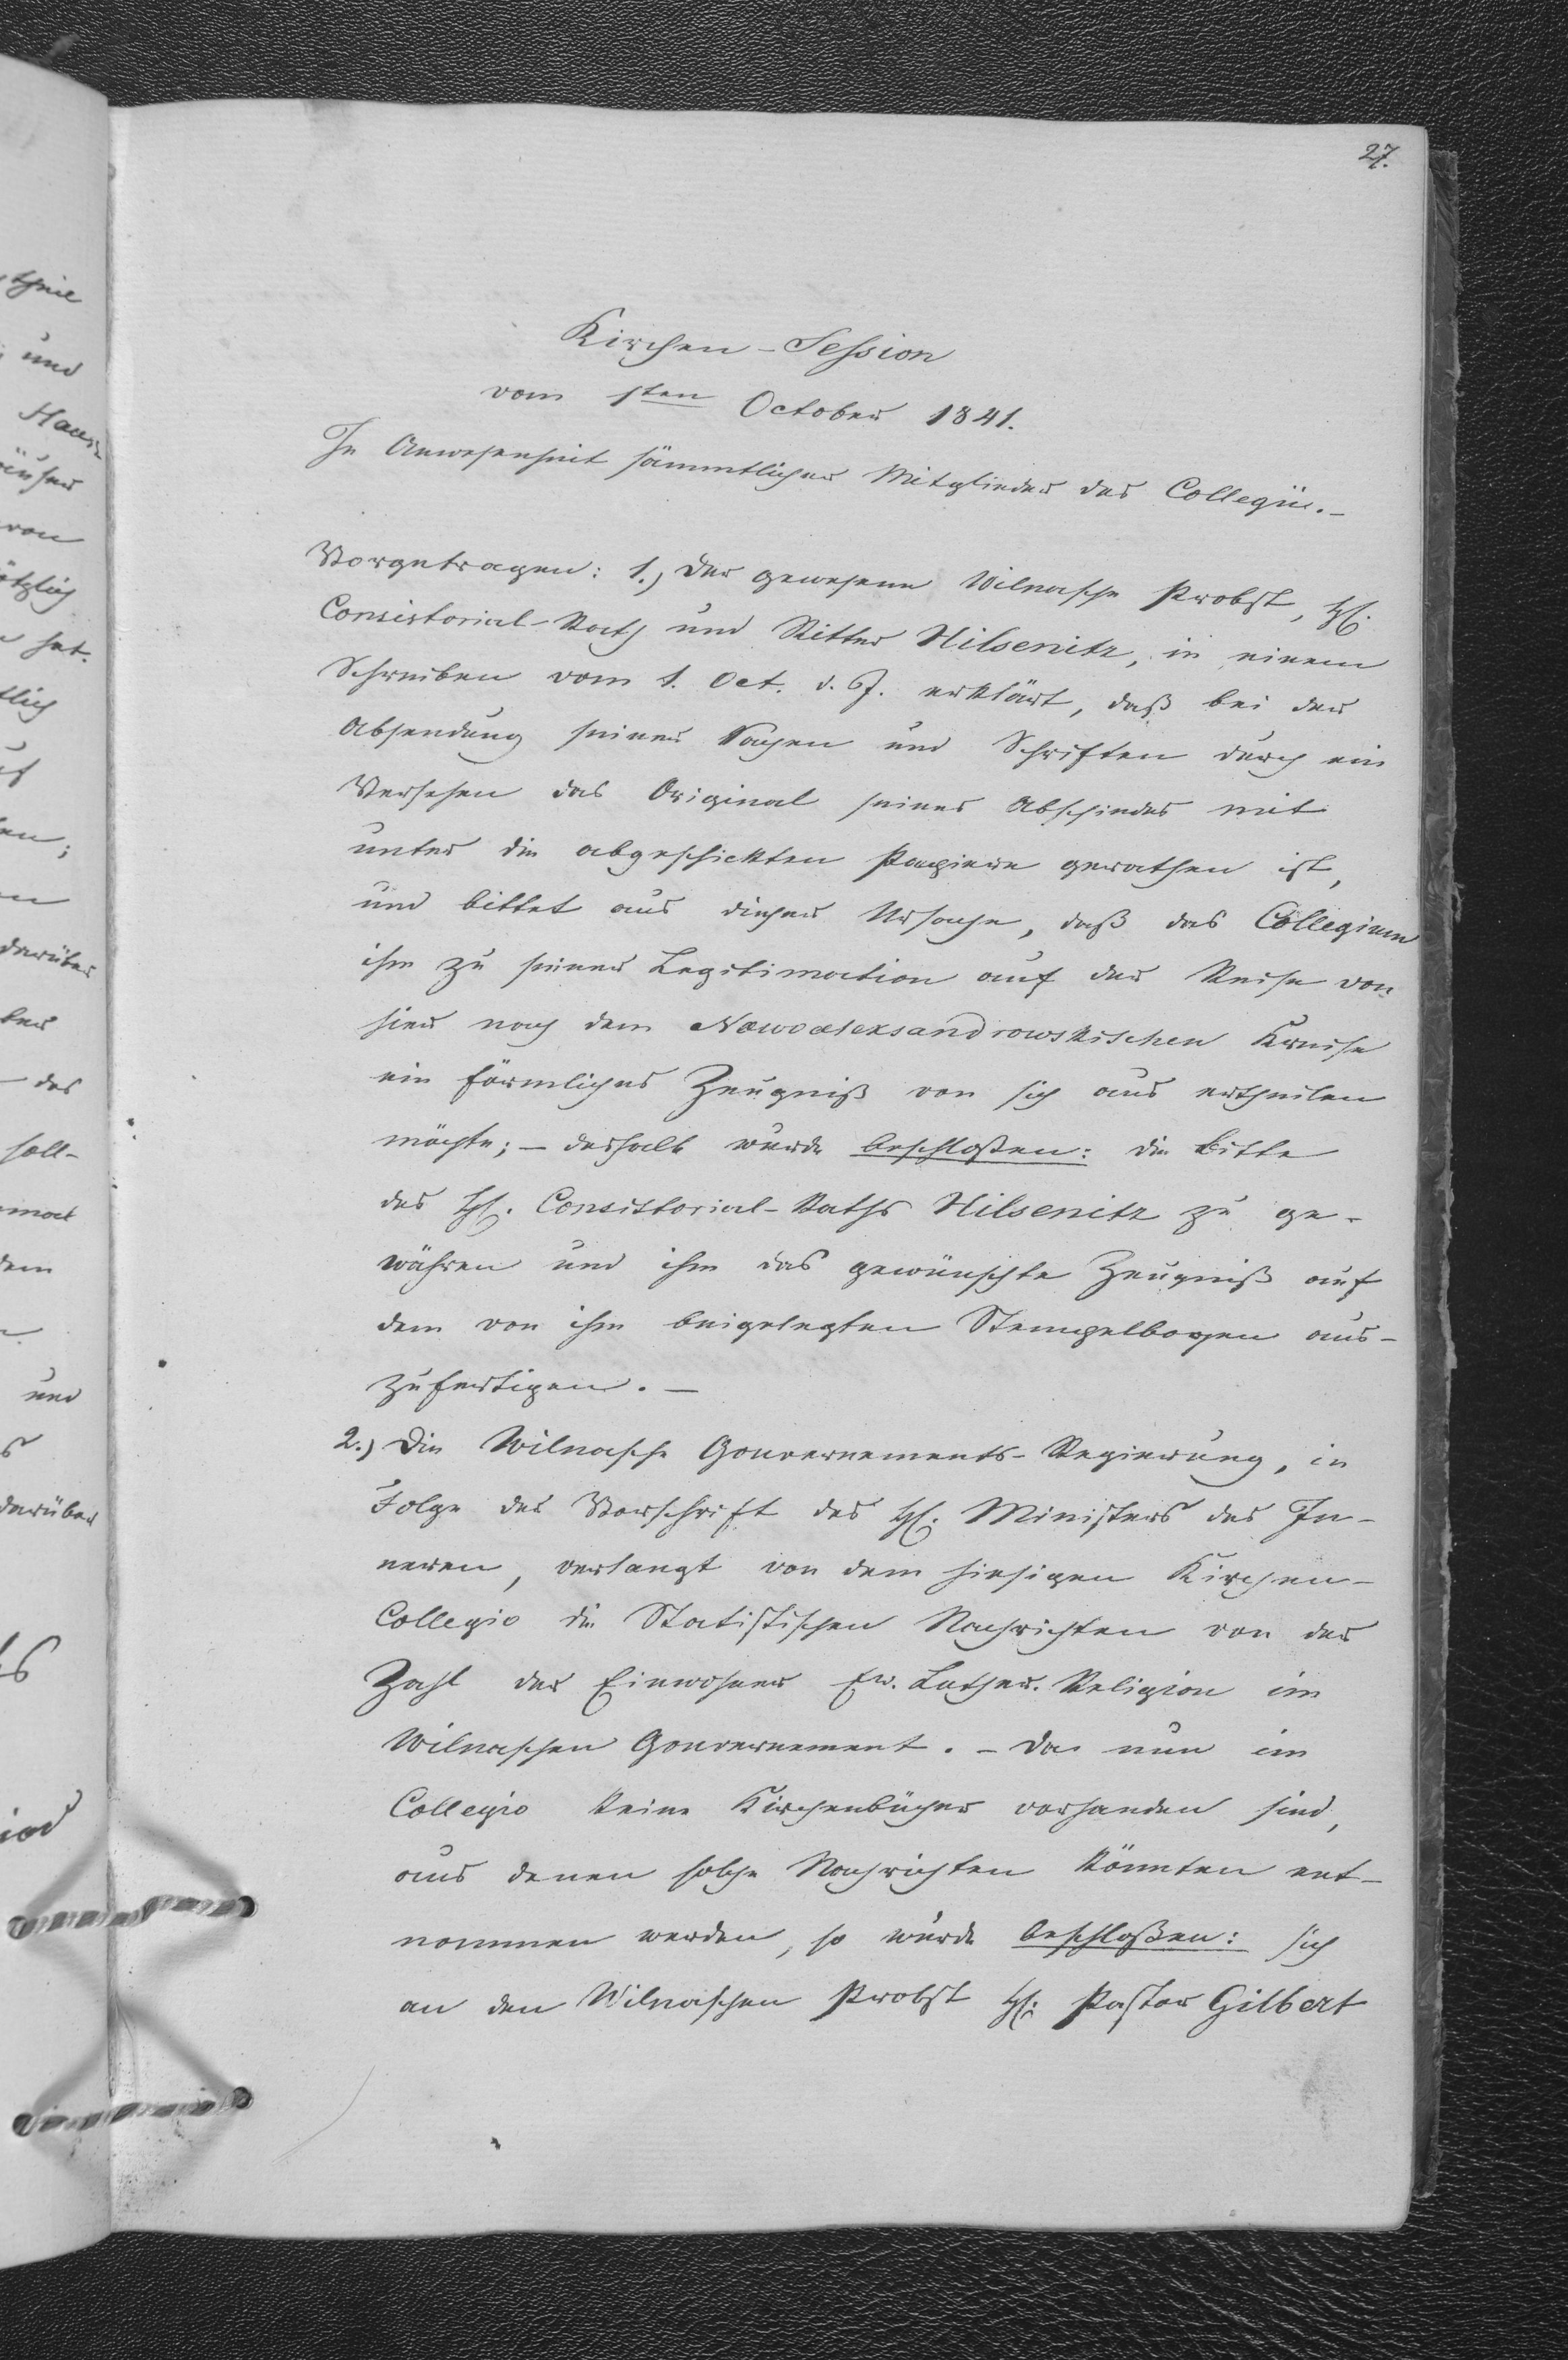 27.
Kirchen-Session
vom 1ten October 1841.
In Anwesenheit sämmtlicher Mitglieder des Collegii.-
Vorgetragen: 1.) Der gewesene Wilnasche Probst, H.
Consistorial-Rath und Ritter Nilsenitz, in einem
Schreiben vom 1. Oct. d. J. erklärt, daß bei der
Absendung seiner Sachen und Schriften durch ein
Versehen das Original seines Abschiedes mit
unter die abgeschickten Papiere gerathen ist,
und bittet aus dieser Ursache, daß das Collegium
ihm zu seiner Legitimation auf der Reise von
hier nach dem Nowoalexandrowskischen Kreise
ein förmliches Zeugniß von sich aus ertheilen
möchte; – deshalb wurde beschloßen: die Bitte
des H. Consistorial-Raths Nilsenitz zu ge-
währen und ihm das gewünschte Zeugniß auf
dem von ihm beigelegten Stempelbogen aus-
zufertigen. –
2.) Die Wilnasche Gouvernements-Regierung, in
Folge der Vorschrift des H. Ministers des In-
neren, verlangt von dem hiesigen Kirchen-
Collegio die Statistischen Nachrichten von der
Zahl der Einwohner Ev. Luther. Religion im
Wilnaschen Gouvernement. – Da nun im
Collegio keine Kirchenbücher vorhanden sind,
aus denen solche Nachrichten könnten ent-
nommen werden, so wurde beschloßen: sich
an den Wilnaschen Probst H. Pastor Gilbert
und
von
hat.
darüber
das
soll-
dem
und
darüber